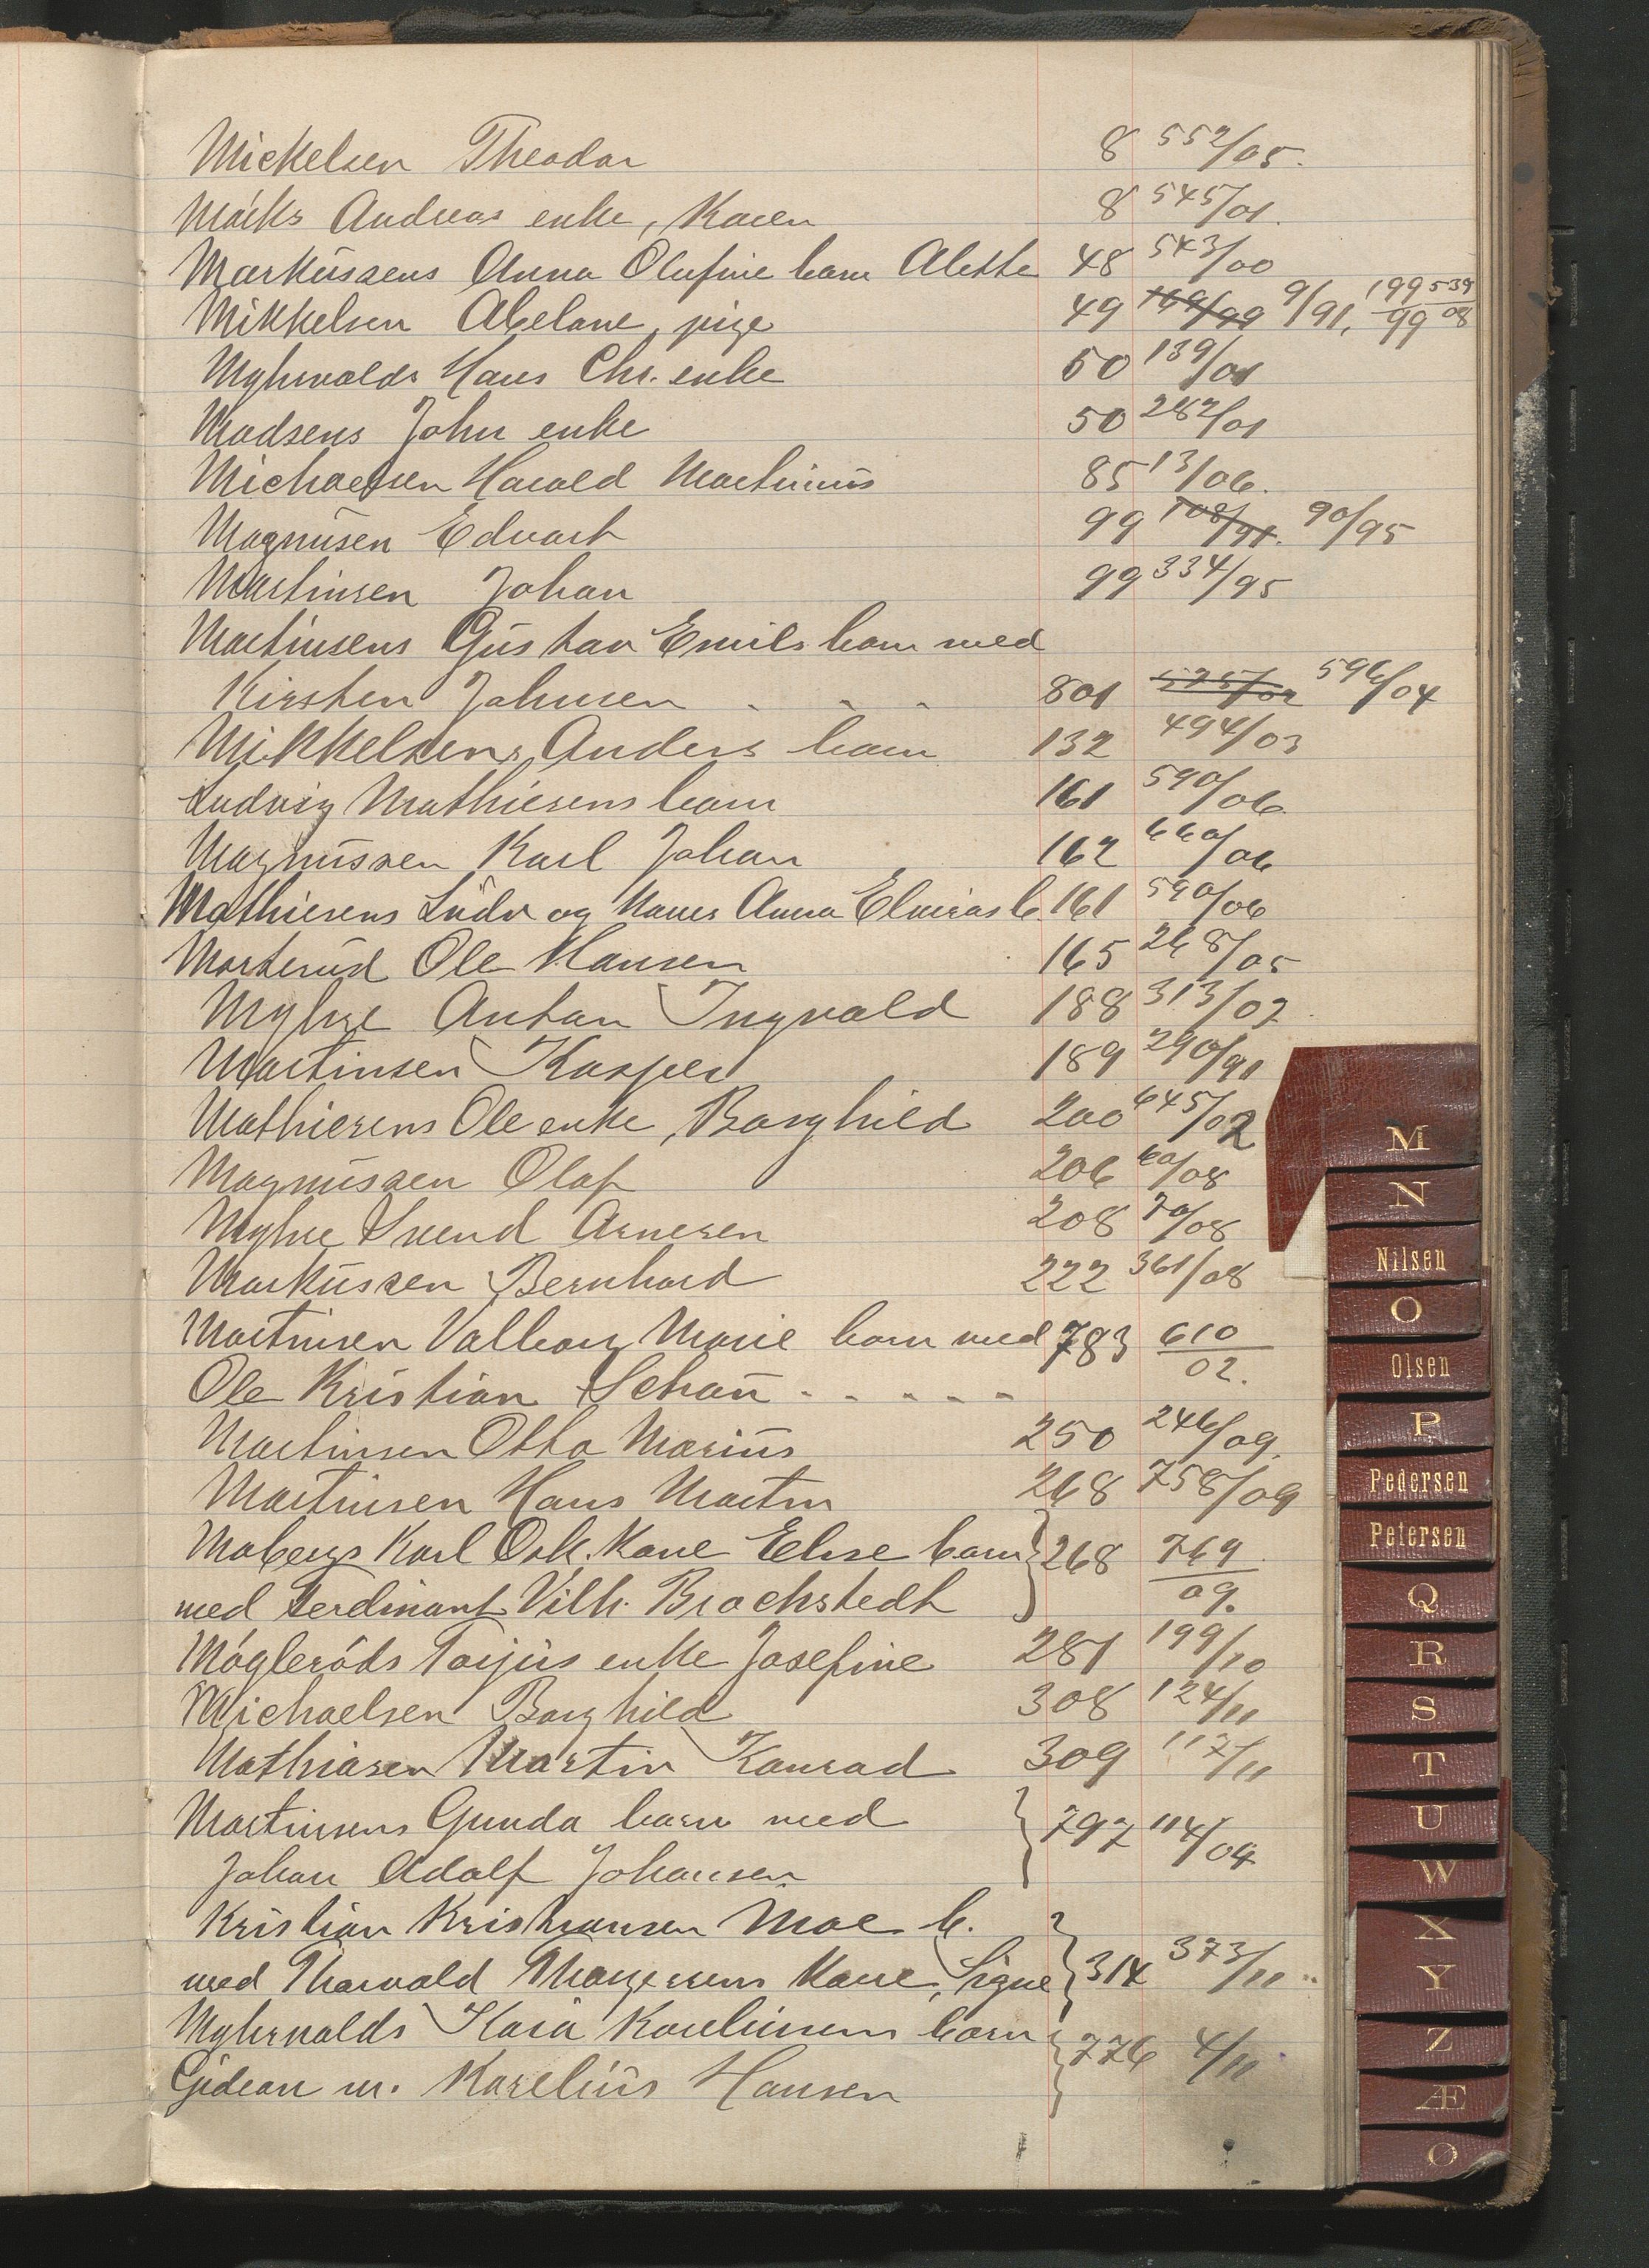 Mickelsen Theodor 8 552/05.
Mörks Andreas enke, Karen 8 545/01.
Markussens Anna Olufine barn Alette 48 543/00
Mikkelsen Abelone, pige 49 169/99 9/91, 199/99 539/08
Myhrvolds Hans Chr. enke 50 139/01
Madsens John enke 50 282/01
Michaelsen Harald Martinius 85 13/06.
Magnusen Edvart 99 108/91. 90/95
Martinsen Johan 99 334/95
Martinsens Gustav Emils barn med
Kirsten Johnsen - - - 801 575/02 596/04
Mikkelsens Anders barn 132 494/03
Ludvig Mathiesens barn 161 590/06.
Magnussen Karl Johan 162 660/06
Mathiesens Ludv og Kones Anna Elviras b. 161 590/06
Morterud Ole Hansen 165 268/05
Myhre Anton Ingvald 188 313/07
Martinsen Kasper 189 290/91
Mathiesens Ole enke, Borghild 200 645/02
Magnussen Olaf 206 60/08
Myhre Svend Arnesen 208 70/08
Markussen Bernhard 222 361/08
Martinsen Valborg Marie barn med 783 610/02.
Ole Kristian Schau - - - - -
Martinsen Otto Marius 250 246/09.
Martinsen Hans Martin 268 758/09
Mobergs Karl Osk. Kone Elise barn 268 769/09.
med Ferdinant Vilh. Brochstedt
Mögleröds Torjus enke Josefine 281 199/10
Michaelsen Borghild 308 124/11
Mathiasen Martin Konrad 309 117/11
Martinsens Gunda barn med 797 114/04
Johan Adolf Johansen
Kristian Kristiansen Moe b.
med Thorvald Thorgersens Kone, Signe 314 373/11
Myhrvolds Kaia Karelinsens barn 776 4/11
Gideon m. Karelius Hansen
M
N
Nilsen
O
Olsen
P
Pedersen
Petersen
Q
R
S
T
U
W
X
Y
Z
Æ
Ø